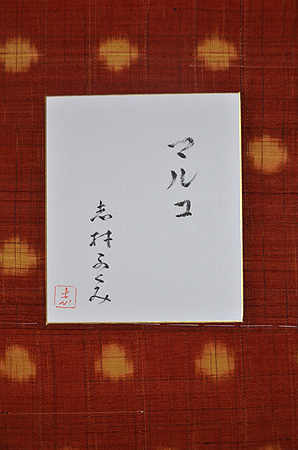 マルコ
志村ふくみ
志